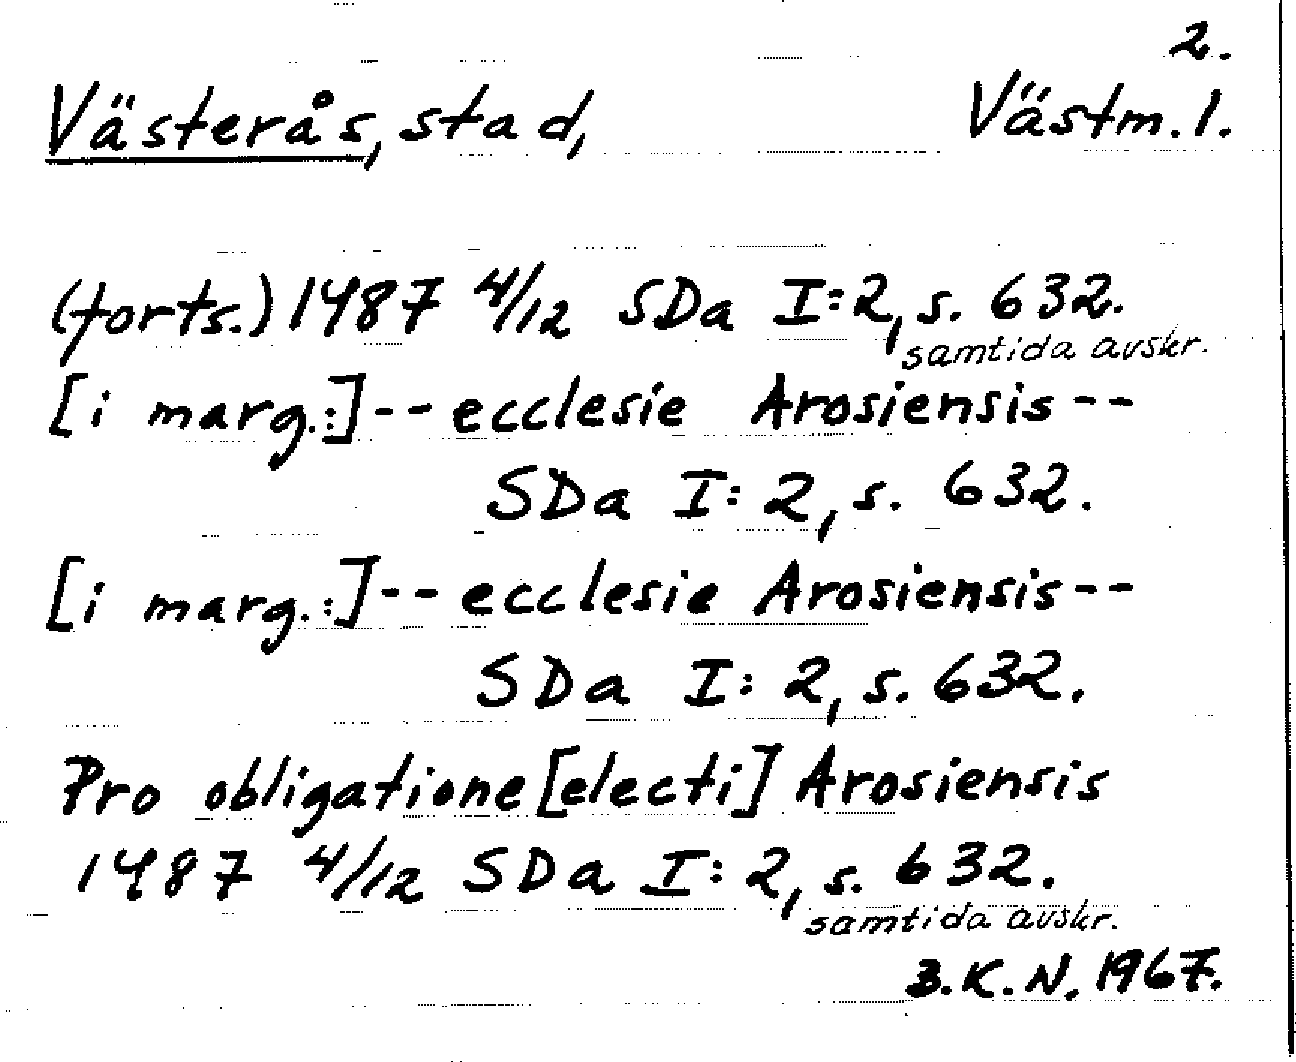 2.
Västerås, stad, Västm. l.
(forts.) 1487 4/12 SDa I:2, s. 632.
samtida avskr.
[i marg.:] -- ecclesie Arosiensis --
SDa I:2, s. 632.
[i marg.:] -- ecclesie Arosiensis --
SDa I:2, s. 632.
Pro obligatione [electi] Arosiensis
1487 4/12 SDa I:2, s. 632.
samtida avskr.
B.K.N. 1967.